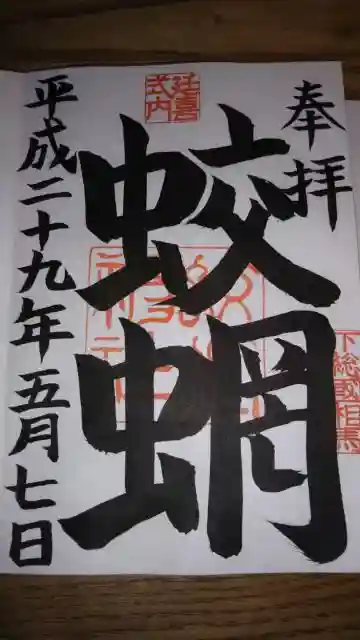 奉拝
下総國相馬
延喜
式内
蛟蝄
平成二十九年五月七日